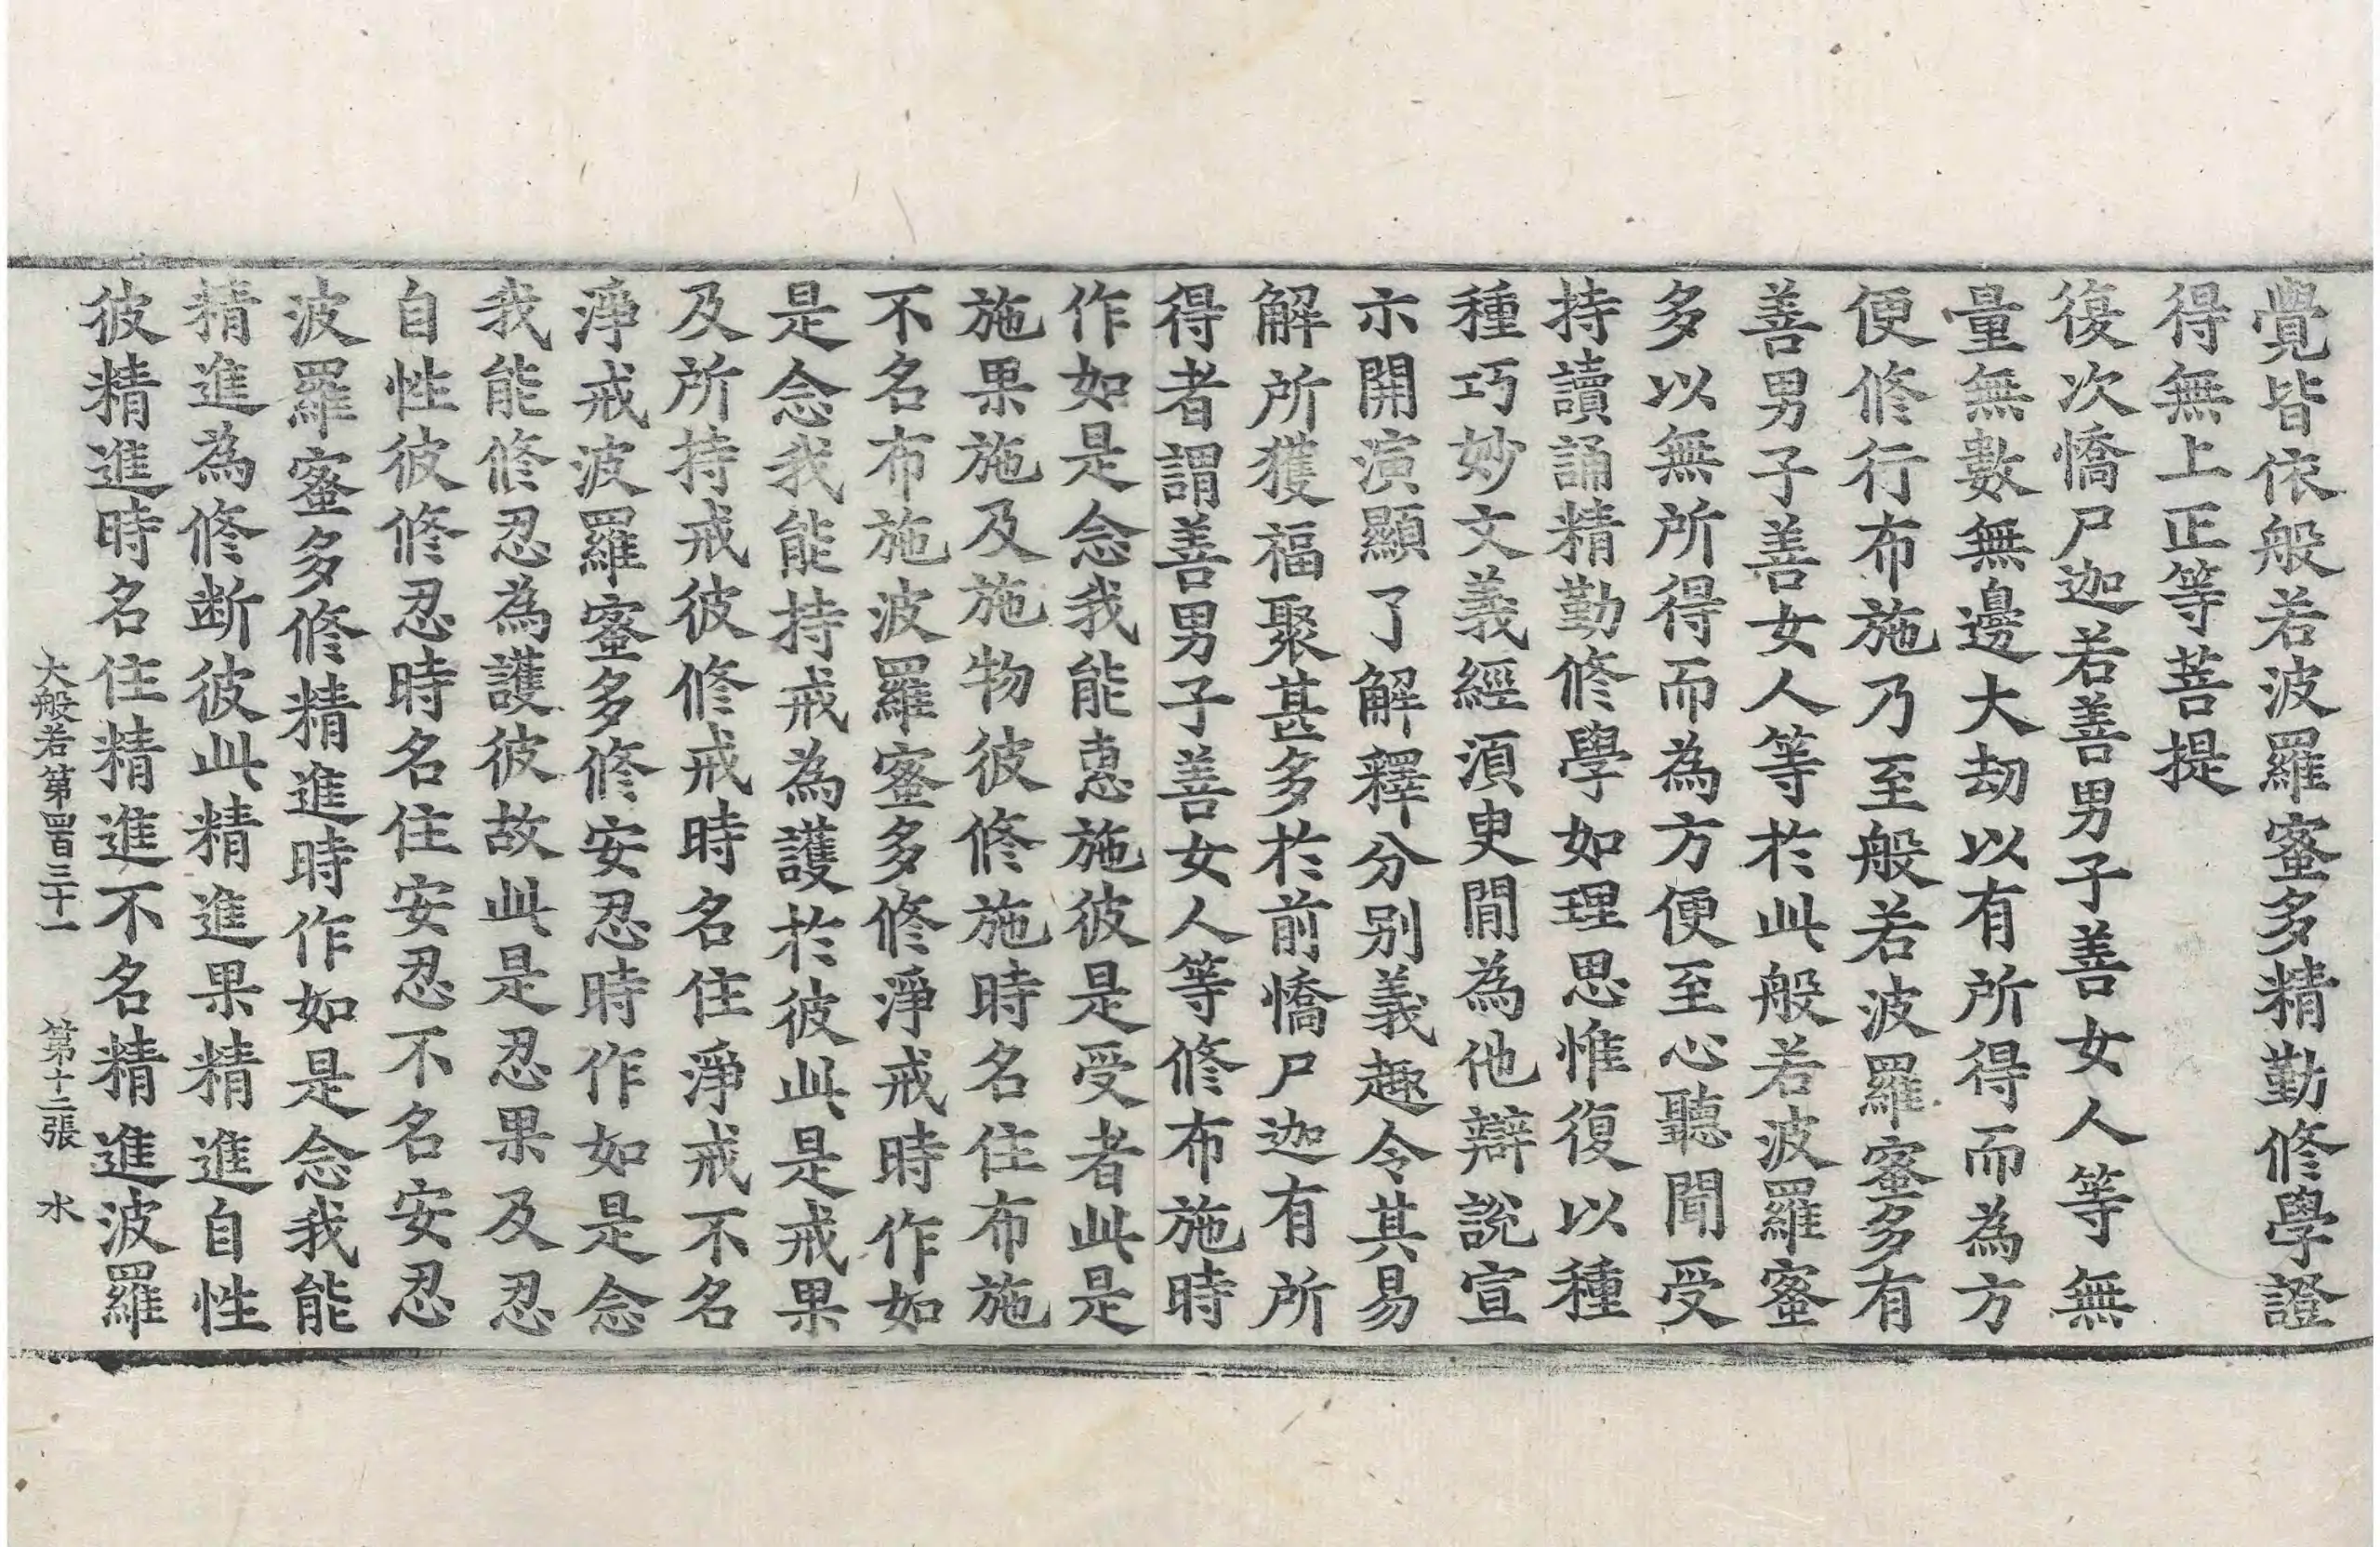 覺皆依般若波羅蜜多精勤修學證
得無上正等菩提
復次憍尸迦若善男子善女人等無
量無數無邊大劫以有所得而為方
便修行布施乃至般若波羅蜜多有
善男子善女人等於此般若波羅蜜
多以無所得而為方便至心聽聞受
持讀誦精勤修學如理思惟復以種
種巧妙文義經須臾閒為他辯說宣
示開演顯了解釋分別義趣令其易
解所獲福聚甚多於前憍尸迦有所
得者謂善男子善女人等修布施時
作如是念我能惠施彼是受者此是
施果施及施物彼修施時名住布施
不名布施波羅蜜多修淨戒時作如
是念我能持戒為護於彼此是戒果
及所持戒彼修戒時名住淨戒不名
淨戒波羅蜜多修安忍時作如是念
我能修忍為護彼故此是忍果及忍
自性彼修忍時名住安忍不名安忍
波羅蜜多修精進時作如是念我能
精進為修断彼此精進果精進自性
彼精進時名住精進不名精進波羅
大般若第四百三十一 第十二張 水